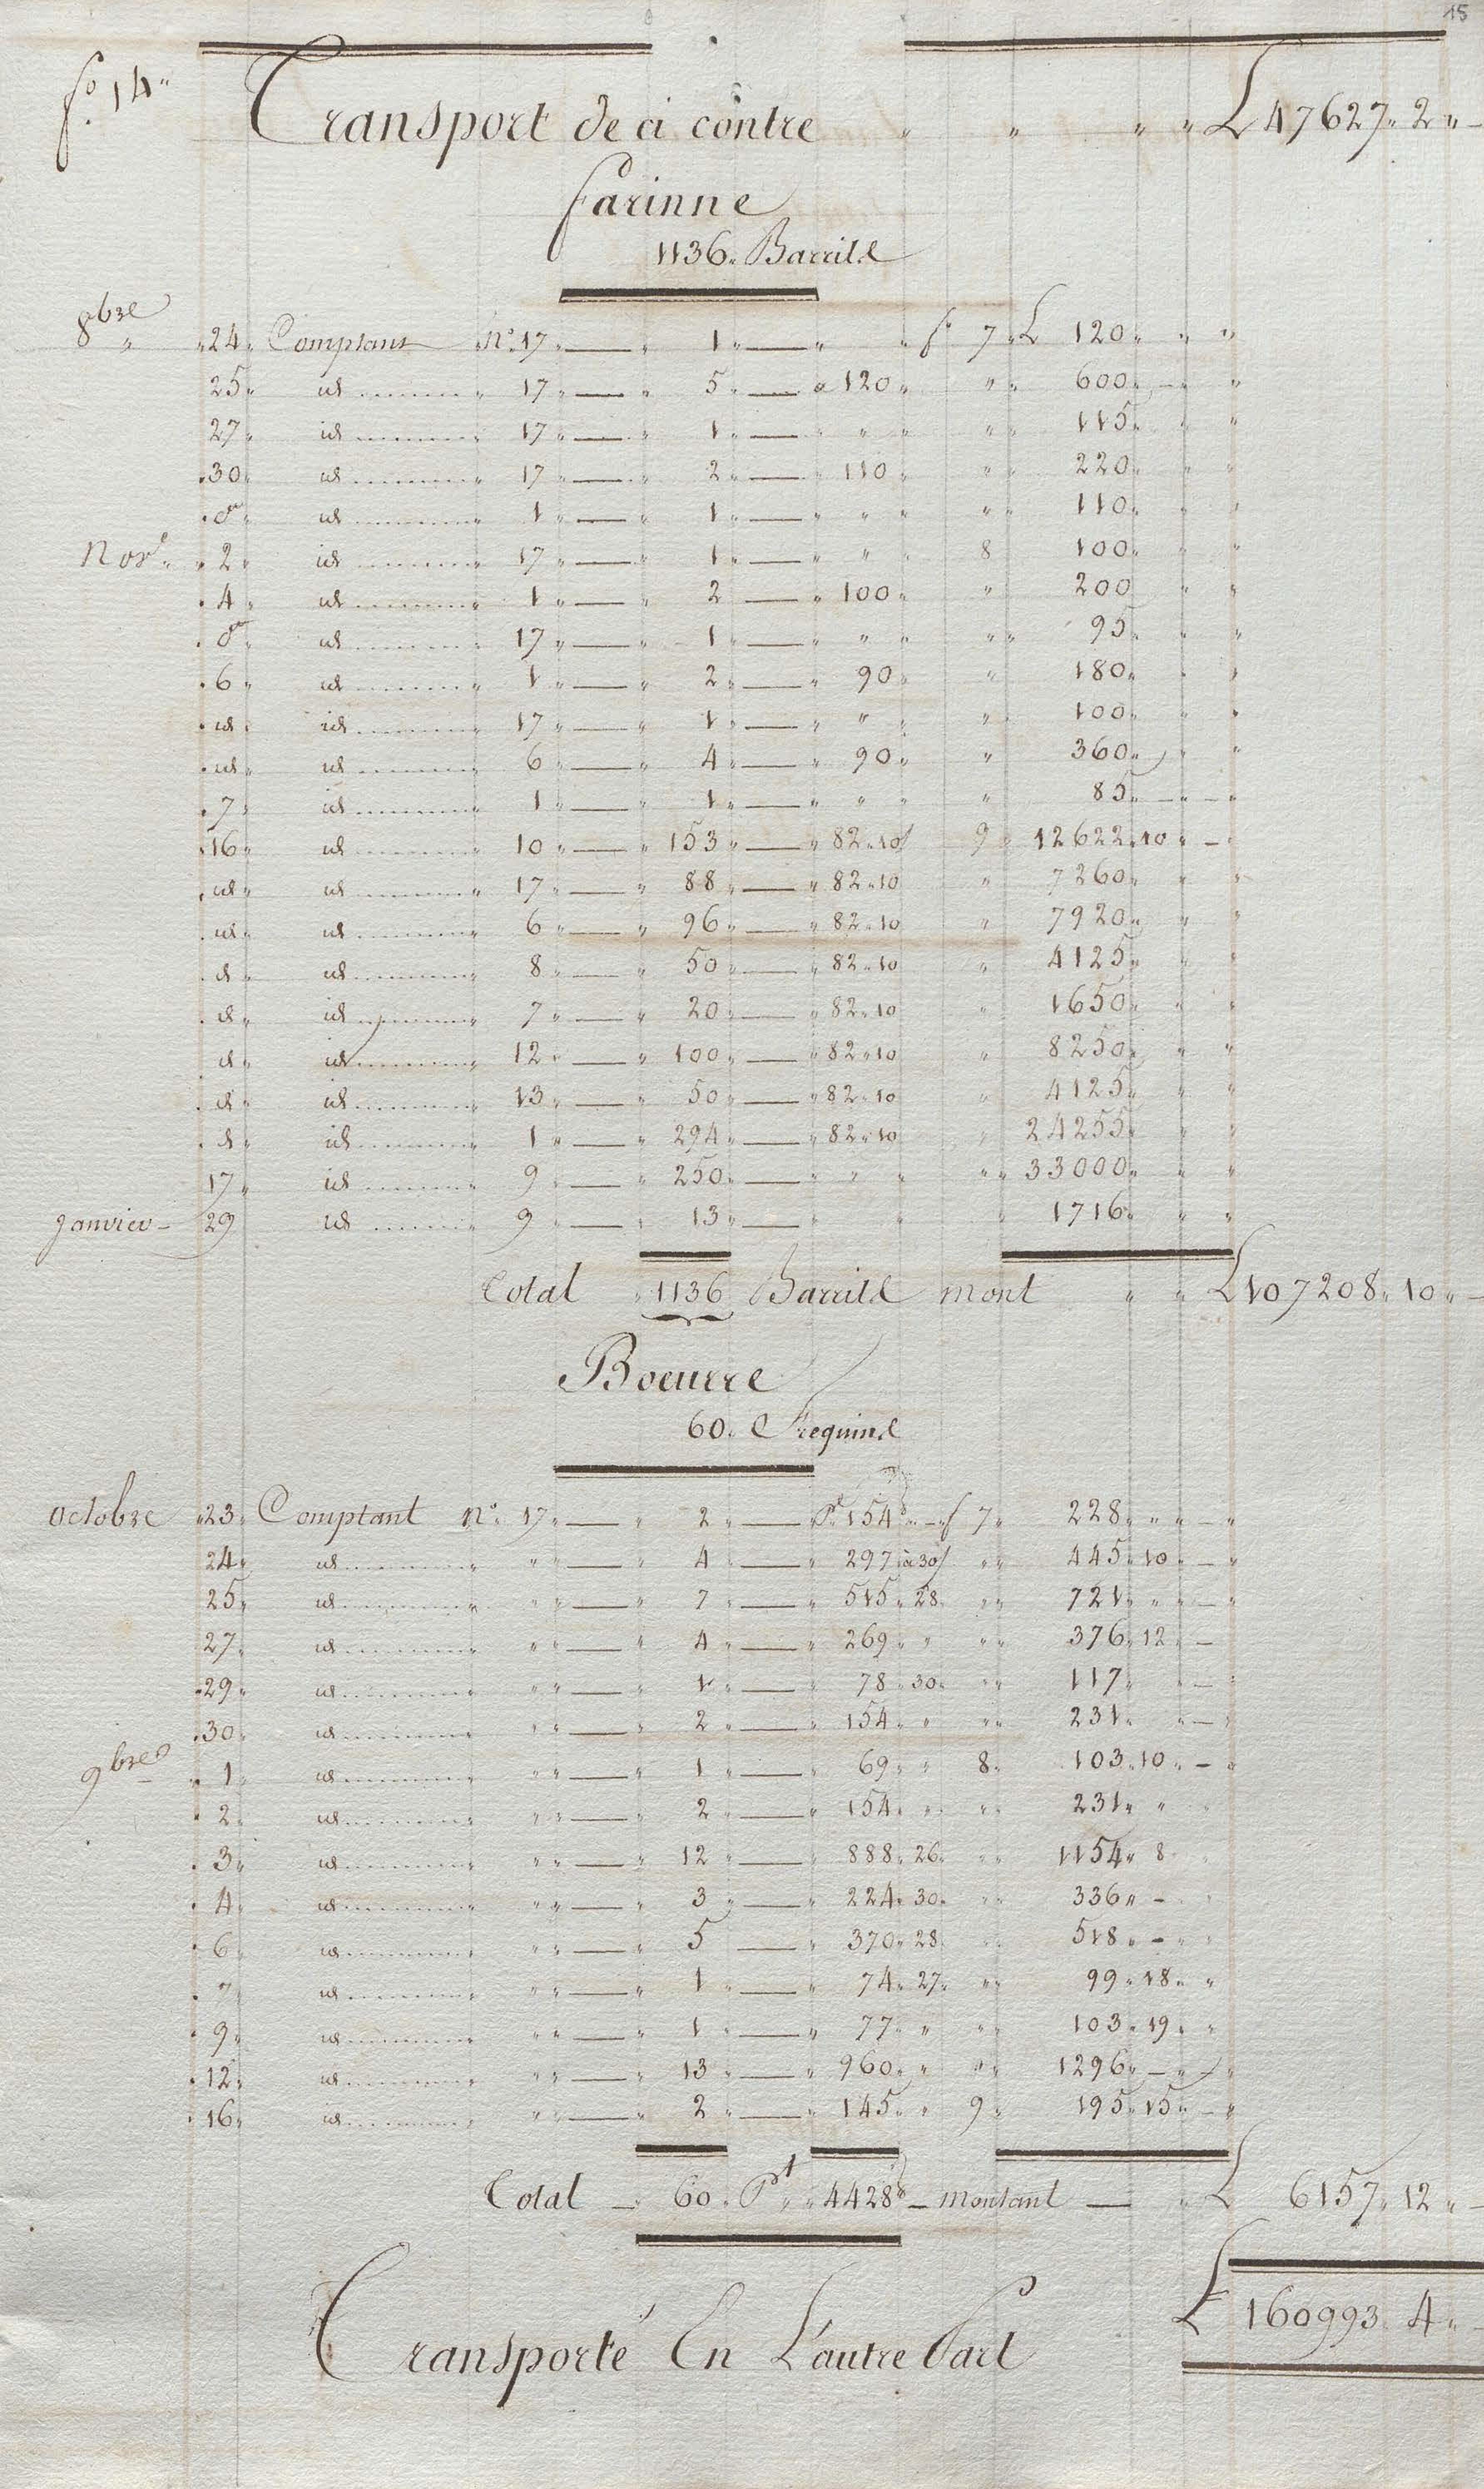 15
fo. 14
Transport de ci contre " " " " L 47627 " 2 " -
farinne
1136 " Barrils
8bre " 24 " Comptant No. 17 " 1 " " fo 7 " L 120 " " "
25 " id " 17 " 5 " a 120 " " " 600 " "
27 " id " 17 " 1 " " " " " 115 " " "
30 " id " 17 " 2 " 110 " " " 220 " " "
do " id " 1 " 1 " " " " " 110 " " "
Nov. " 2 " id " 17 " 1 " " " 8 100 " " "
4 " id " 1 " 2 " 100 " " 200 " "
do " id " 17 " 1 " " " " " 95 " " "
6 " id " 1 " 2 " 90 " " 180 " " "
id " id " 17 " 1 " " " " 100 " " "
id " id " 6 " 4 " 90 " " 360 " " "
7 " id " 1 " 1 " " " " 85 " - " - "
16 " id " 10 " 153 " 82 " 10 9 " 12622 " 10 " -
id " id " 17 " 88 " 82 " 10 " 7260 " " "
id " id " 6 " 96 " 82 " 10 " 7920 " " "
d " id " 8 " 50 " 82 " 10 " 4125 " " "
d " id " 7 " 20 " 82 " 10 " 1650 " " "
d " id " 12 " 100 " 82 " 10 " 8250 " " "
d " id " 13 " 50 " 82 " 10 " 4125 " " "
d " id " 1 " 294 " 82 " 10 " 24255 " " "
17 " id " 9 " 250 " " " " " 33000 " " "
Janvier - 29 id " 9 " 13 " " " 1716 " " "
Total " 1136 Barrils mont " " L 107208 " 10 " -
Boeurre
60 " Frequins
Octobre " 23 " Comptant No. 17 " 2 " Pt 154 " - " f 7 " 228 " " " - "
24 " id " " " 4 " 297 " à 30 " " 445 " 10 " - "
25 " id " " " 7 " 515 " 28 " " 721 " " " - "
27 " id " " " 4 " 269 " " " " 376 " 12 " -
29 " id " " " 1 " 78 " 30 " " " 117 " " -
30 " id " " " 2 " 154 " " " " 231 " " -
9bre " 1 " id " " " 1 " 69 " " 8 " 103 " 10 " - "
2 " id " " " 2 " 154 " " " " 231 " "
3 " id " " " 12 " 888 " 26 " " " 1154 " 8
4 " id " " " 3 " 224 " 30 " " " 336 " -
6 " id " " " 5 " 370 " 28 " " 518 " - "
7 id " " " 1 " 74 " 27 " " " 99 " 18 " "
9 " id " " " 1 " 77 " " " " 103 " 19 " "
12 " id " " " 13 " 960 " " " " 1296 " - " - "
16 " id " " " 2 " 145 " " 9 " 195 " 15 " - "
Total - 60 " Pt " 4428 - montant - " L 6157 " 12 " -
L 160993 " 4 " -
Transporté En L'autre Part